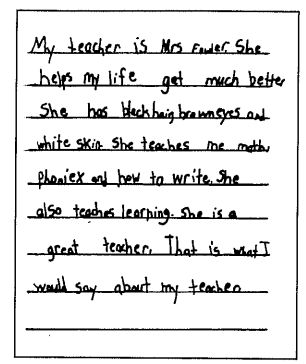 My teacher is Mrs Fowler. She
helps my life get much better
She has black hair, brown eyes and
white skin. She teaches me math,
phoniex and how to write. She
also teaches learning. She is a
great teacher. That is what I
would say about my teacher